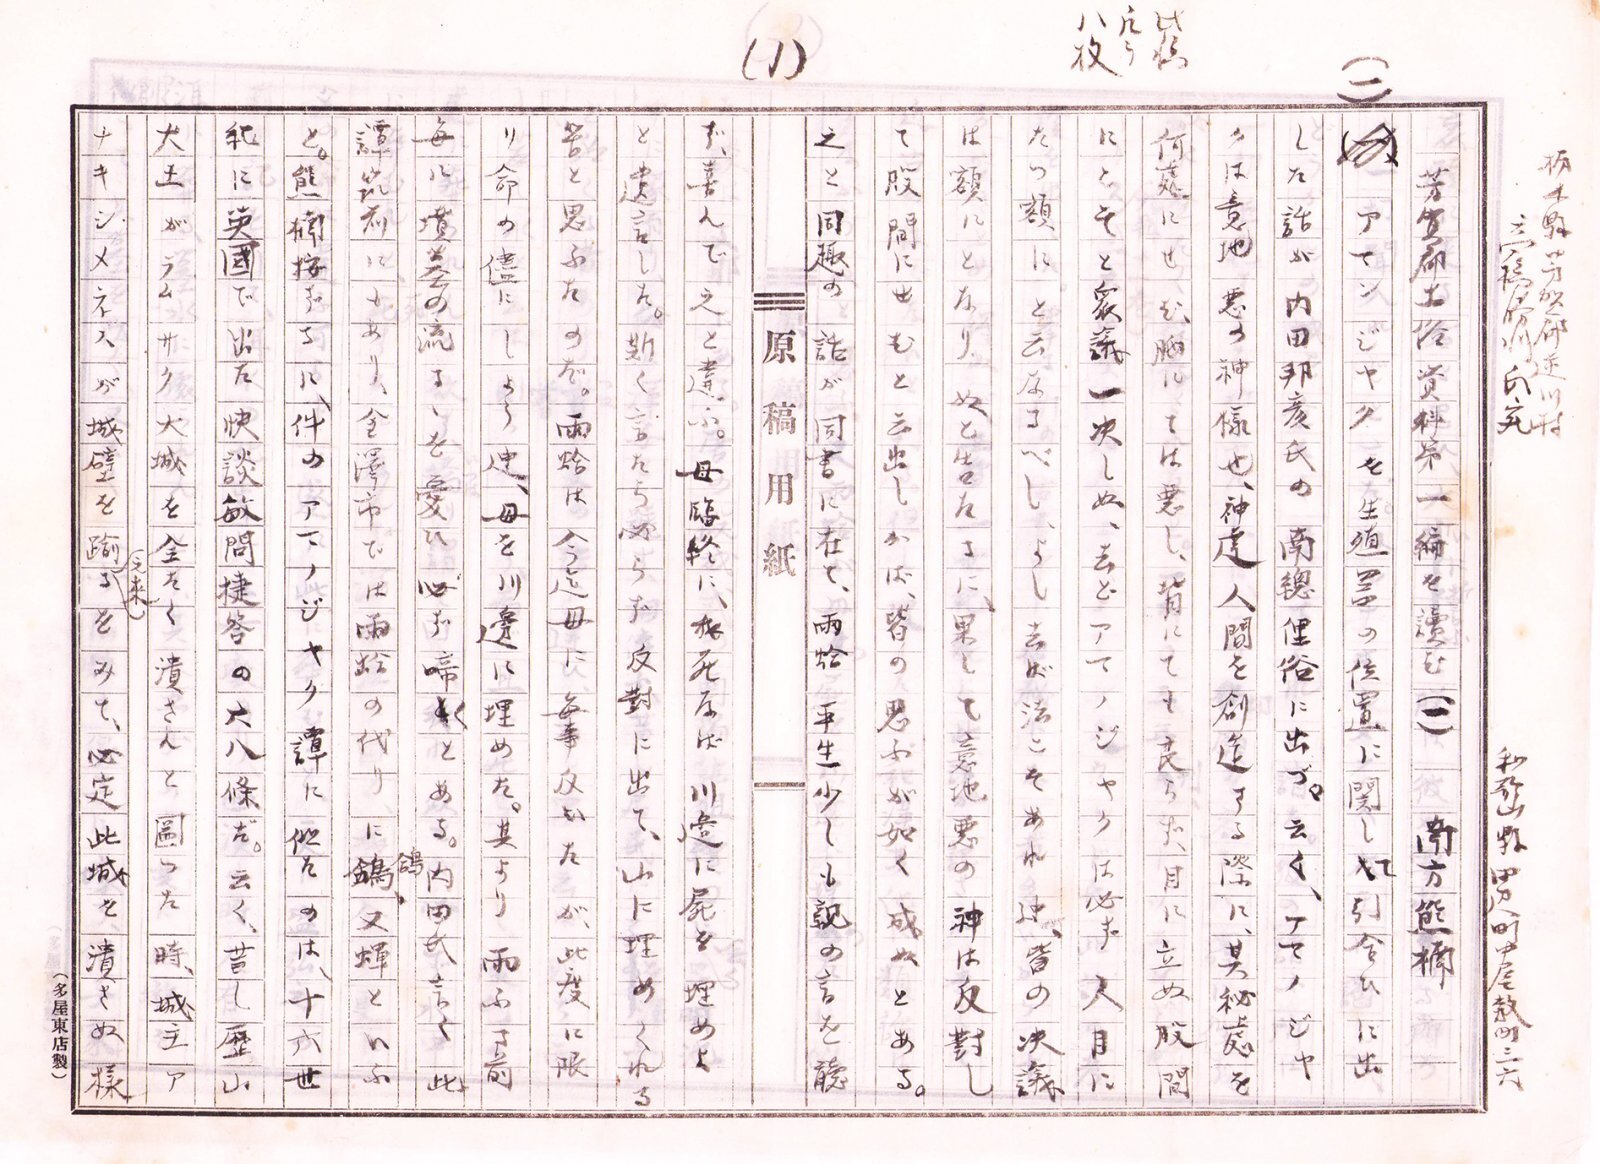 栃木縣芳賀郡逆川村
氏宛
和歌山縣田辺町中屋敷町三六
此稿
凡そ
八枚
(一)
(1)
芳賀郡土俗資料第一編を讀む(一) 南方熊楠
アマンジヤクを生殖器の位置に関し引合ひに出
した話が内田邦彦氏の南總俚俗に出づ。云く、アマノジヤ
クは意地悪の神様也、神達人間を創造する際に、其秘処を
何処にせむ、胸にては悪し、背にても良らず、目に立ぬ股間
にこそと衆議一決しぬ、去どアマノジヤクは必ず人目に
たつ額にと云なるべし、よし去ば法こそあれ迚、皆の决議
は額にとなりぬと告たるに、果して意地悪の神は反對し
て股間にせむと云出しかば、皆の思ふが如く成ぬとある。
之と同趣の話が同書に在て、雨蛤平生少しも親の言を聽
ず、喜んで之と違ふ。母臨終に、我死なば川邉に屍を埋めよ
と遺言した。斯く言たら必らず反對に出て、山に埋めくれる
筈と思ふたのだ。雨蛤は今迄母に毎事反いたが、此度に限
り命の儘にしよう迚、母を川邊に埋めた。其より雨ふる前
毎に墳墓の流るゝを憂ひ必ず啼くとある。内田氏言く此
譚筑前にもあり、金澤市では雨蛤の代りに鴿、又蟬といふ
と。熊楠按ずるに、件のアマノジヤク譚に似たのは、十六世
紀に英國で出た快談敏問捷答の大八條だ。云く、昔し歴山
大王がラムサク大城を全たく潰さんと圖つた時、城主ア
ナキシメネスが城壁を踰(え来)るをみて、必定此城を潰さぬ様
原稿用紙
(多屋東店製)